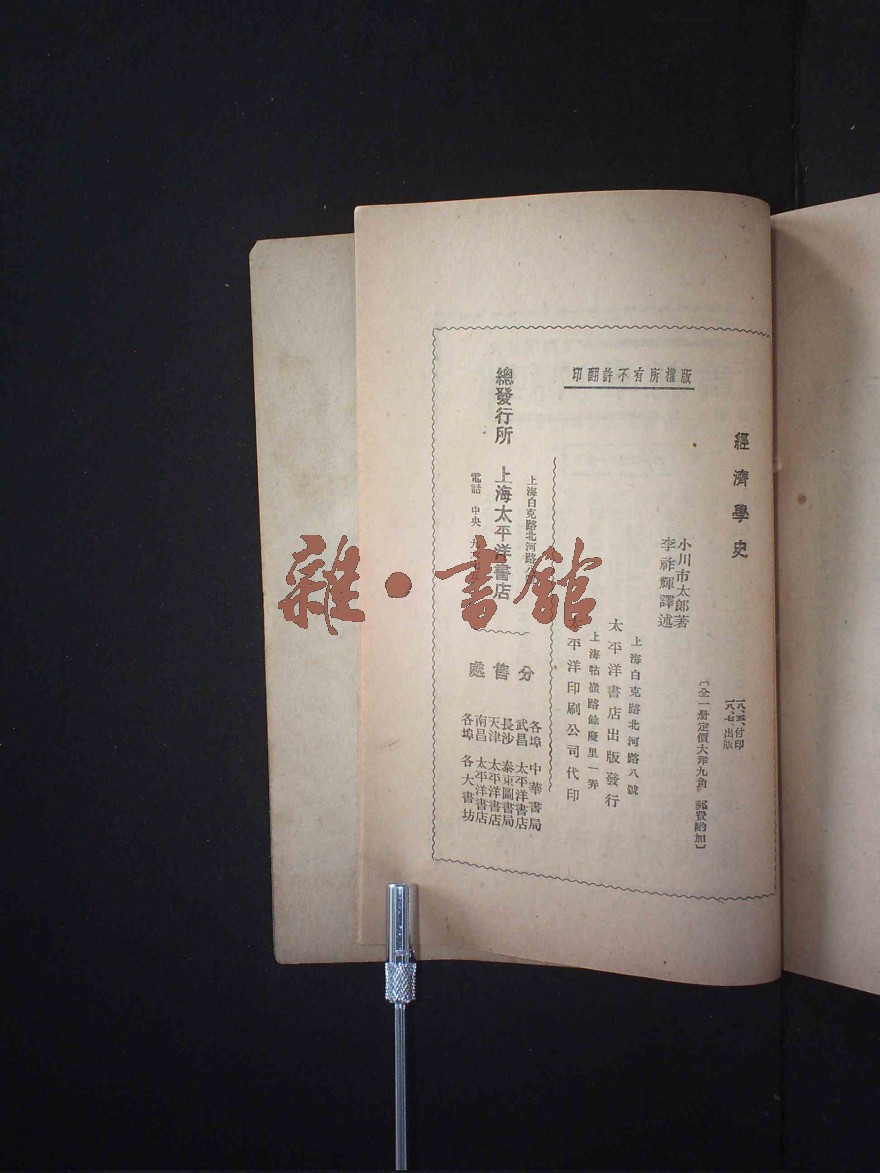 版權所有不許翻印
經濟學史
一八、五、付印
一八、七、出版
〔全一册定價大洋九角 郵費酌加〕
小川市太郎著
李祚輝譯述
上海白克路北河路八號
太平洋書店出版發行
上海牯嶺路餘慶里一弄
太平洋印刷公司代印
上海白克路北河路八
總發行所 上海太平洋書店
電話 中央
分售處
各埠 中華書局
武昌 太平洋書店
長沙 泰東圖書局
天津 太平洋書店
南昌 太平洋書店
各埠 各大書坊
雜·書館